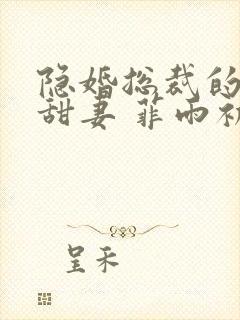 隐婚总裁的
甜妻 菲雨初
呈禾